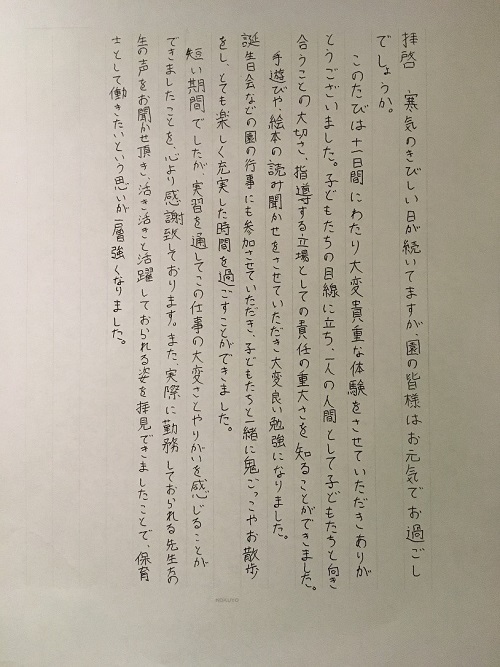 拝啓　寒気のきびしい日が続いてますが、園の皆様はお元気でお過ごし
でしょうか。
このたびは十一日間にわたり大変貴重な体験をさせていただきありが
とうございました。子どもたちの目線に立ち、一人の人間として子どもたちと向き
合うことの大切さ、指導する立場としての責任の重大さを知ることができました。
手遊びや、絵本の読み聞かせをさせていただき大変良い勉強になりました。
誕生日会などの園の行事にも参加させていただき、子どもたちと一緒に鬼ごっこやお散歩
をし、とても楽しく充実した時間を過ごすことができました。
短い期間でしたが、実習を通してこの仕事の大変さとやりがいを感じることが
できましたことを、心より感謝致しております。また、実際に勤務しておられる先生方の
生の声をお聞かせ頂き、活き活きと活躍しておられる姿を拝見できましたことで、保育
士として働きたいという思いが一層強くなりました。